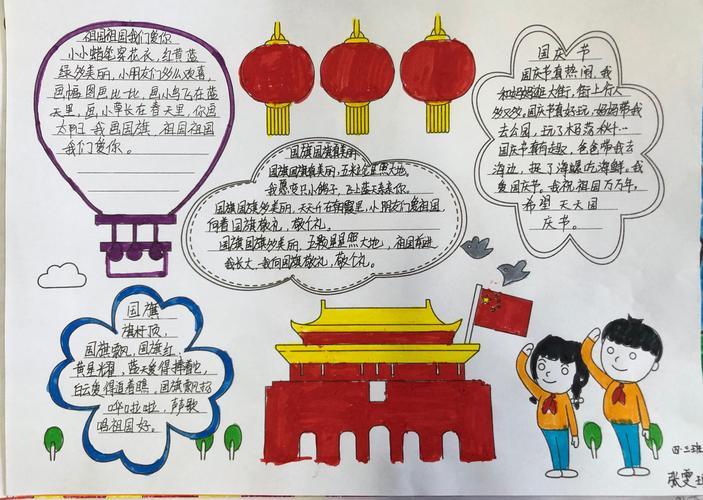 祖国祖国我们爱你
小小蜡笔穿花衣，红黄蓝
绿多美丽，小朋友们多么欢喜，
画幅图画比一比，画小鸟飞在蓝
天里，画小草长在春天里，你画
太阳我画国旗，祖国祖国
我们爱你。
国旗国旗真美丽
国旗国旗真美丽，五米金星照大地，
我愿变只小鸽子，飞上蓝天亲亲你。
国旗国旗多美丽，天天升在朝霞里，小朋友们爱祖国
向着国旗敬礼，敬个礼。
国旗国旗多美丽，五颗星星照大地，祖国前进
我长大，我向国旗敬礼，敬个礼。
国庆节
国庆节真热闹，我
和妈妈逛大街，街上行人
多又多，国庆节真好玩，妈妈带我
去公园，玩了木马荡秋千…
国庆节真有趣，爸爸带我去
海边，捉了海螺吃海鲜。我
爱国庆节。我祝祖国万万年，
希望天天国
庆节。
国旗
旗杆顶，
国旗飘，国旗红，
黄星耀，蓝天爱得捧着它，
白云爱得追着瞧，国旗飘扬
哗啦啦，声声歌
唱祖国好。
四·三班
张雯